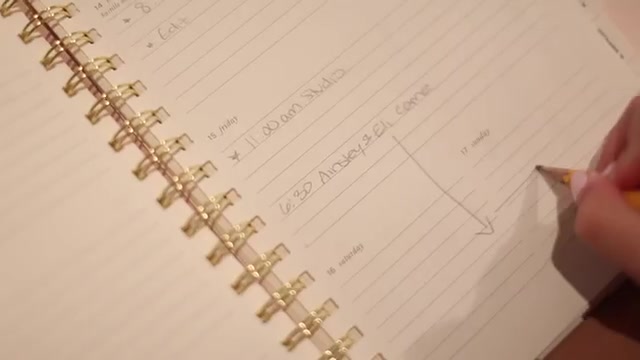 14
* 8
* Edit
15 friday
* 11:00am Studio
6:30 Ainsley & Eli come
16 saturday
17 sunday